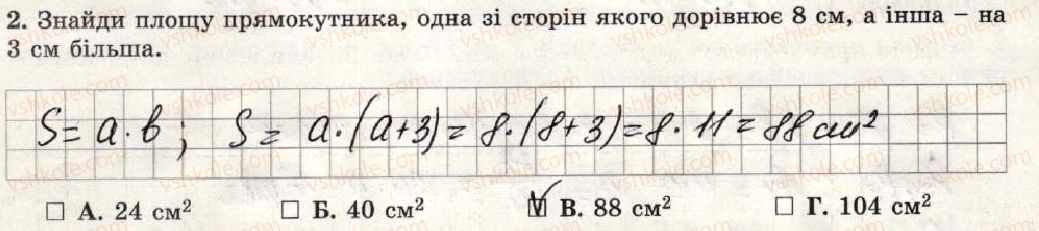 2. Знайди площу прямокутника, одна зі сторін якого дорівнює 8 см, а інша – на
3 см більша.
S = a · b ; S = a · (a+3) = 8 · (8+3) = 8 · 11 = 88 см²
☐ А. 24 см² ☐ Б. 40 см² ☑ В. 88 см² ☐ Г. 104 см²